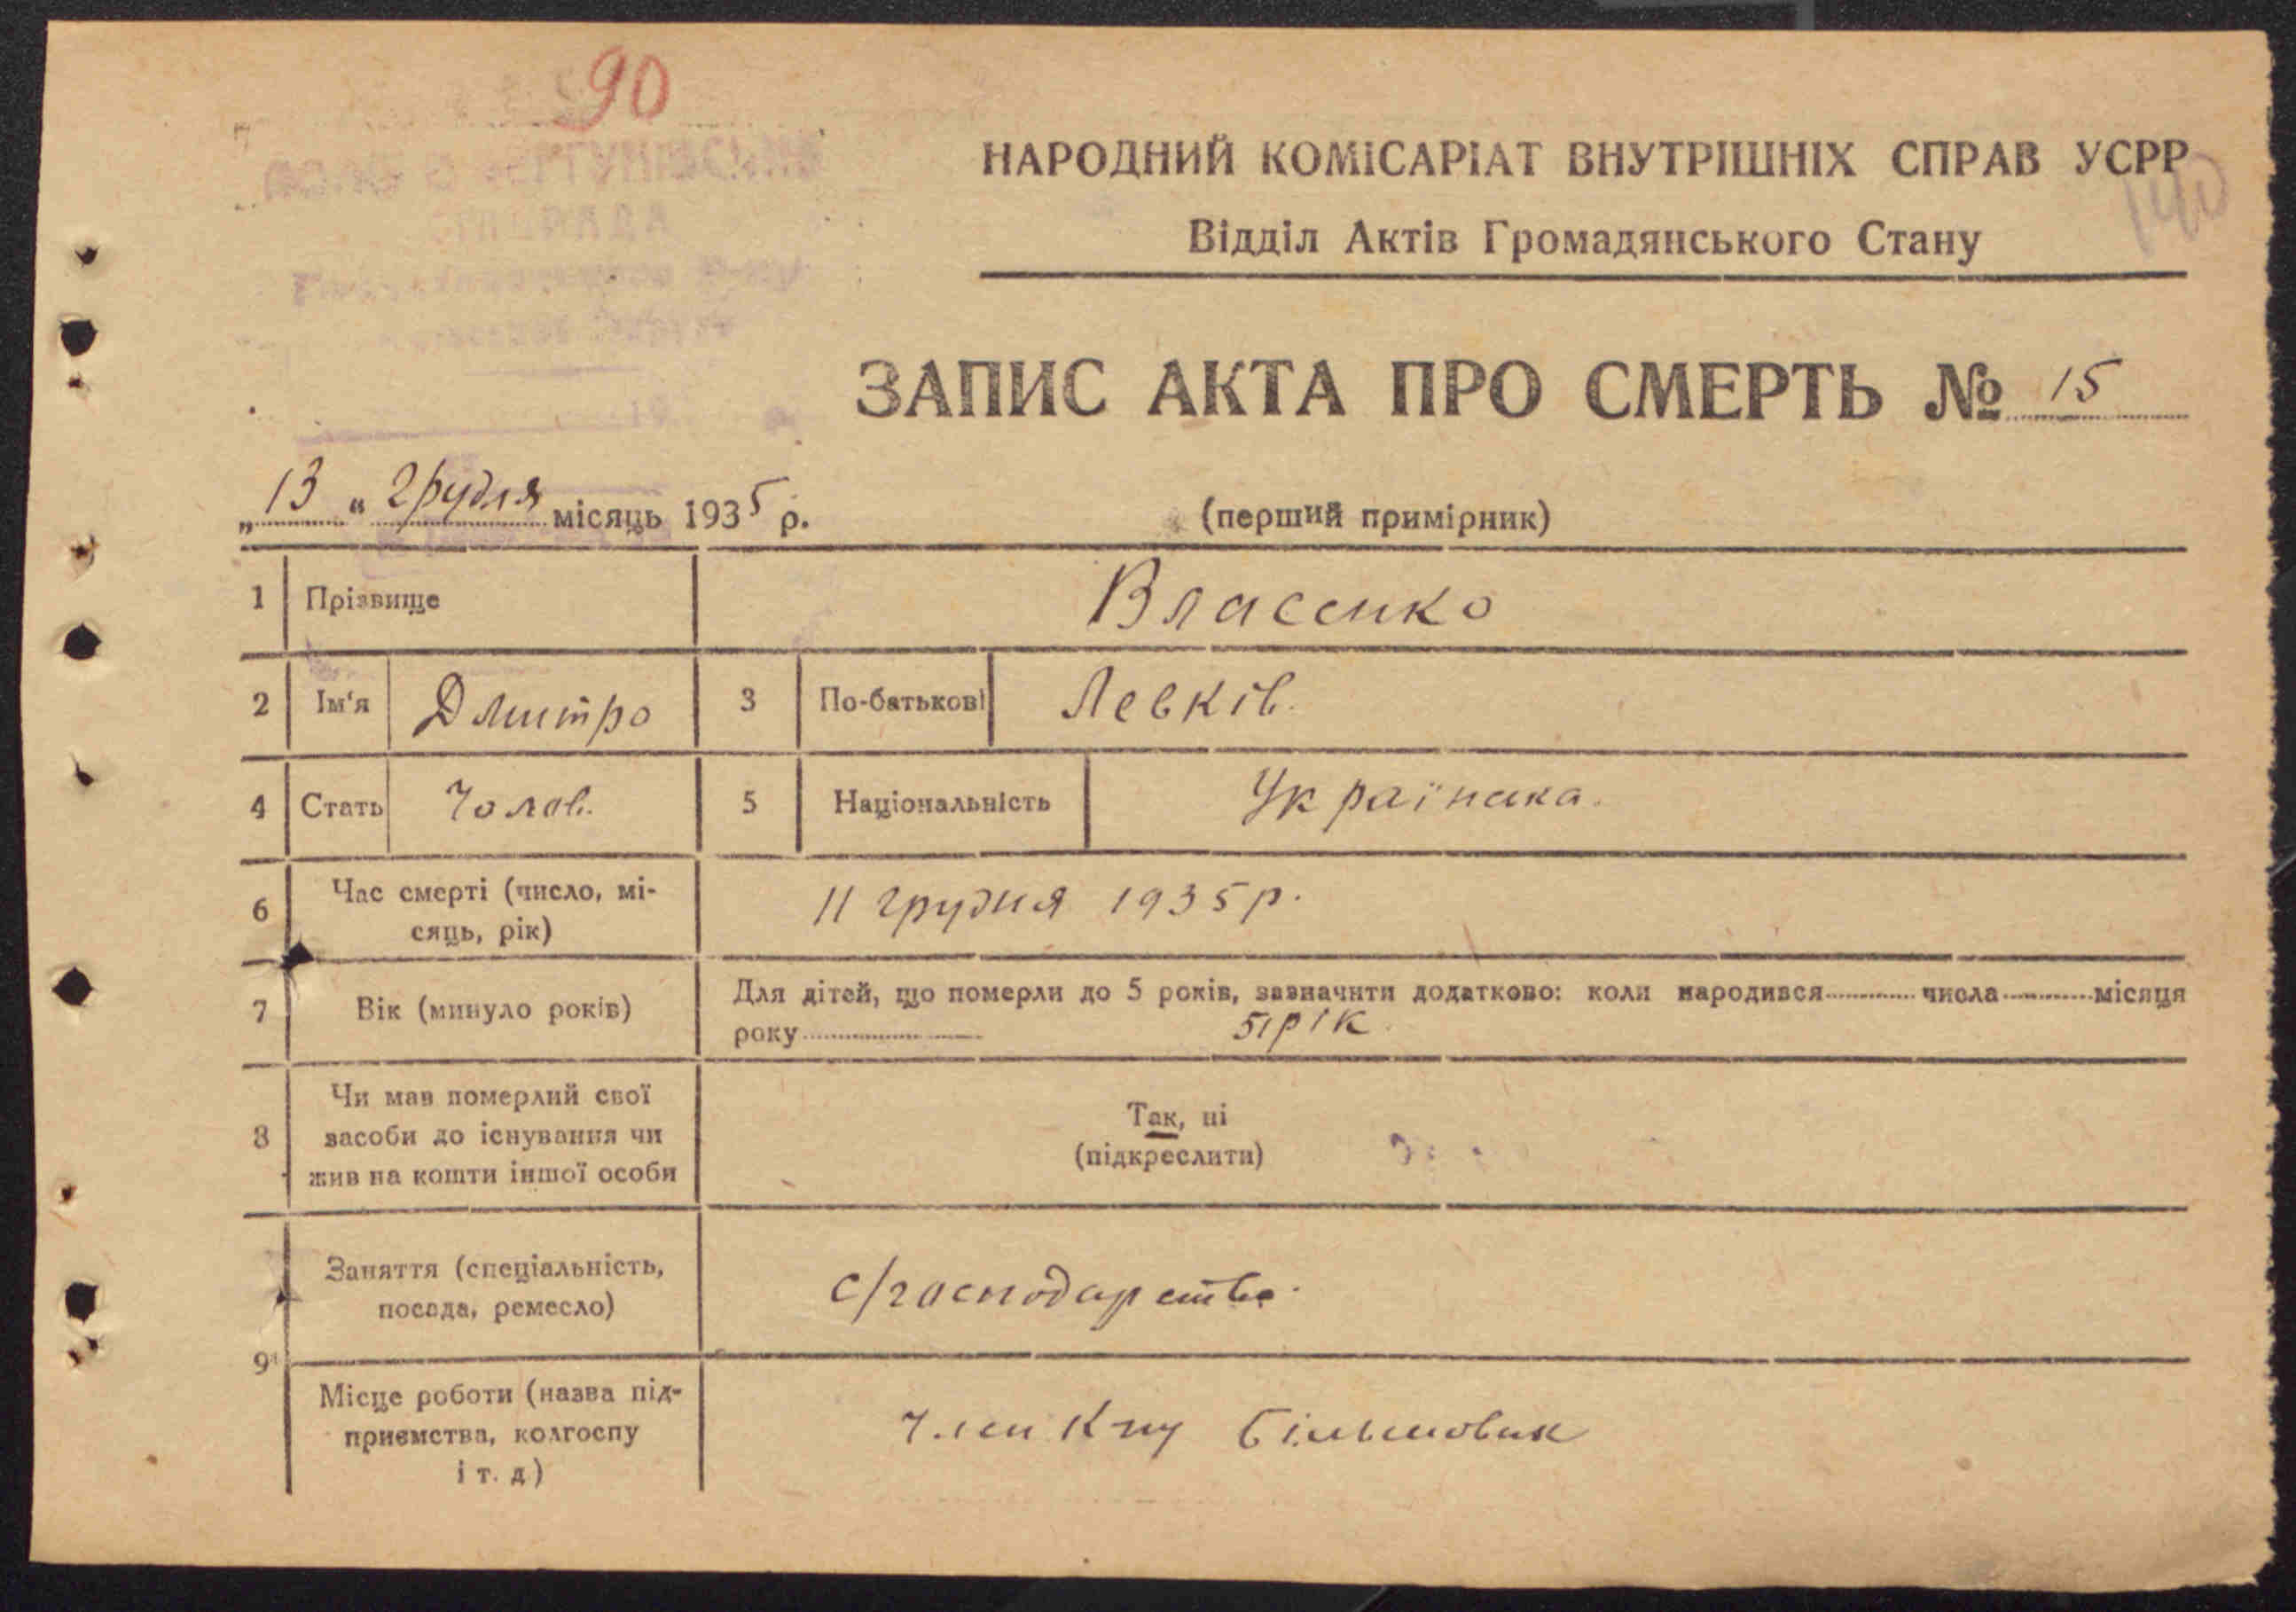 90
НАРОДНИЙ КОМІСАРІАТ ВНУТРІШНІХ СПРАВ УСРР
140
Відділ Актів Громадянського Стану
СІЛЬРАДА
ЗАПИС АКТА ПРО СМЕРТЬ № 15
„13“ грудня місяць 1935 р.
(перший примірник)
1 Прізвище Власенко
2 Ім'я Дмитро 3 По-батькові Левків.
4 Стать Чолов. 5 Національність Українська.
6 Час смерті (число, мі-
сяць, рік) 11 грудня 1935 р.
7 Вік (минуло років) Для дітей, що померли до 5 років, зазначити додатково: коли народився числа місяця
року 51 рік.
8 Чи мав померлий свої
засоби до існування чи
жив на кошти іншої особи
Так, ні
(підкреслити)
9 Заняття (спеціальність,
посада, ремесло) с/господарство.
Місце роботи (назва під-
приємства, колгоспу
і т. д) Член К-пу Більшовик